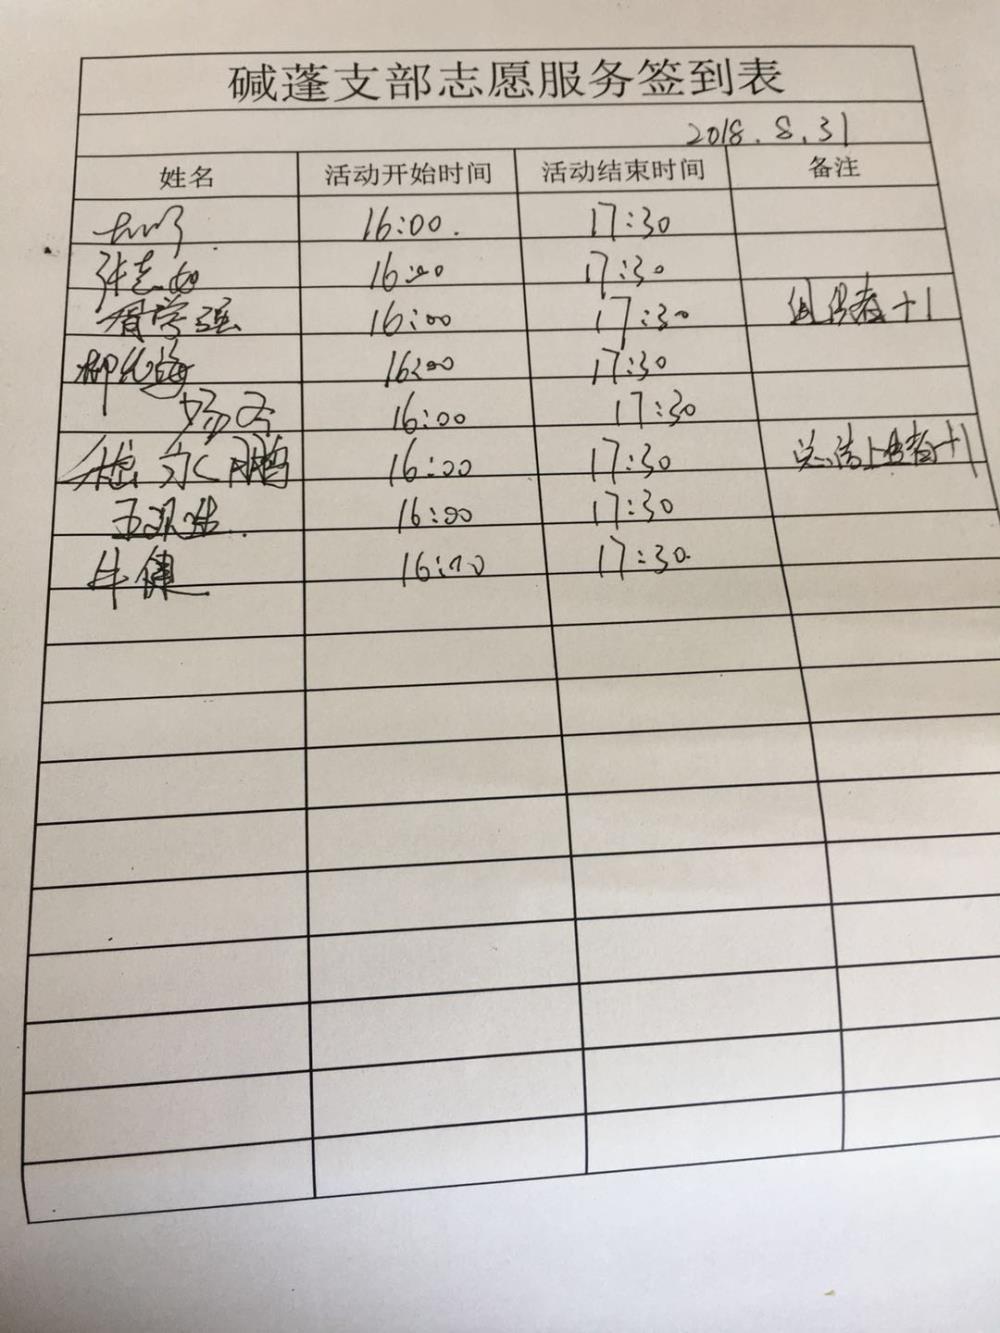 碱蓬支部志愿服务签到表
2018.8.31
姓名 活动开始时间 活动结束时间 备注
16:00. 17:30
张志 16:00 17:30
胥学强 16:00 17:30 组织者+1
柳 16:00 17:30
杨冬 16:00 17:30
嵇永鹏 16:00 17:30 总结上传者+1
王 16:00 17:30
牛健 16:00 17:30